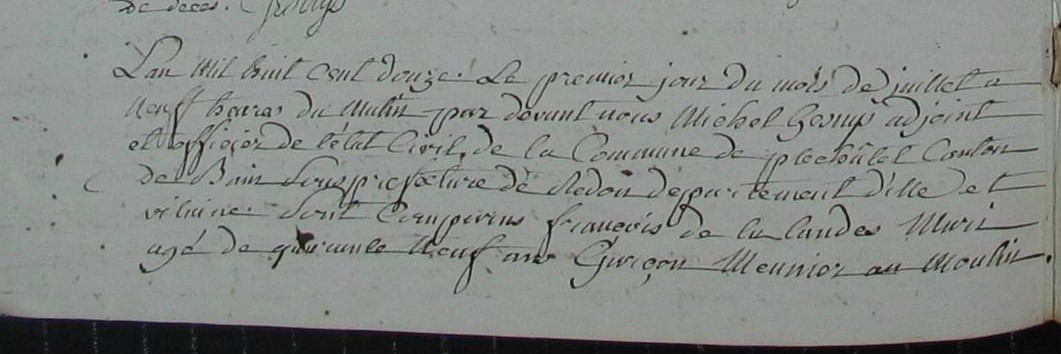 de deces.
L'an Mil huit Cent douze. Le premier jour du mois de juillet a
neuff heures du Matin par devant nous Michel adjoint
et officier de l'état Civil de la Commune de plechâtel Canton
de Bain Sousprefecture de Redon departement d'ille et
vilaine. Sont Comparus francois de la landes Mari
agé de quarante neuf ans Garçon Meunier au Moulin